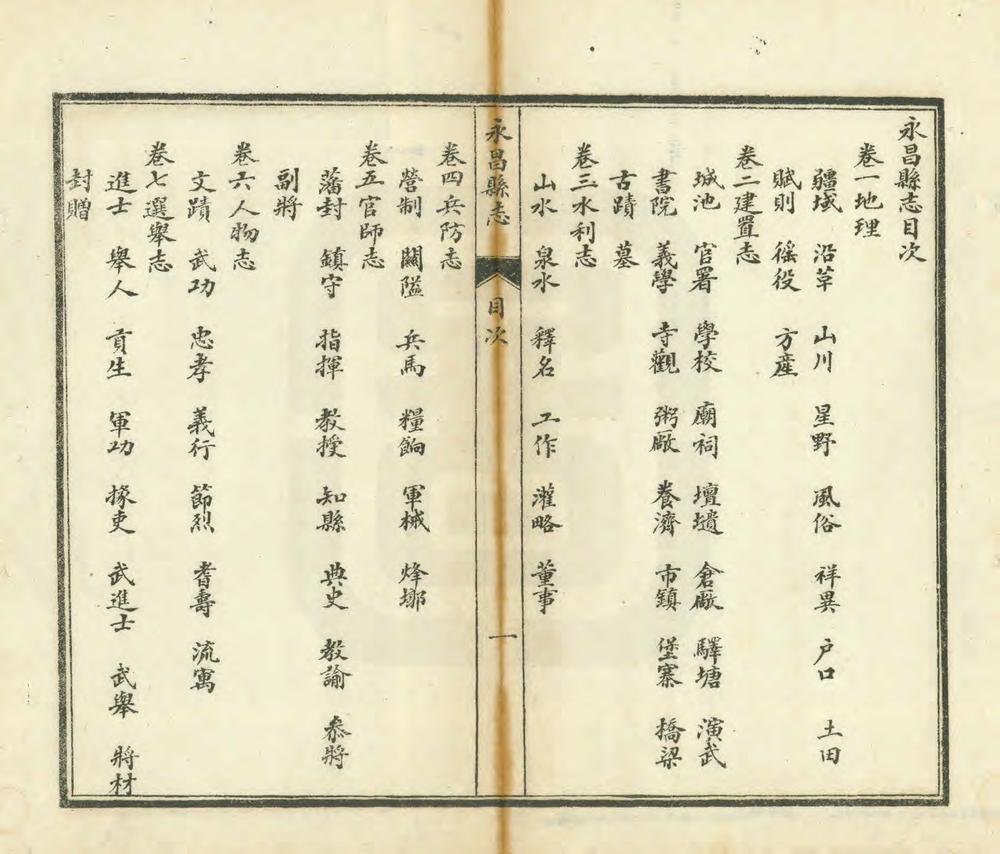 永昌縣志目次
卷一地理
疆域 沿革 山川 星野 風俗 祥異 户口 土田
賦則 徭役 方產
卷二建置志
城池 官署 學校 廟祠 壇壝 倉厫 驛塘 演武
書院 義學 寺觀 粥厰 養濟 市鎮 堡寨 橋梁
古蹟 墓
卷三水利志
山水 泉水 釋名 工作 灌略 董事
永昌縣志 目次 一
卷四兵防志
營制 關隘 兵馬 糧餉 軍械 烽墩
卷五官師志
藩封 鎮守 指揮 教授 知縣 典史 教諭 叅將
副將
卷六人物志
文蹟 武功 忠孝 義行 節烈 耆壽 流寓
卷七選舉志
進士 舉人 貢生 軍功 掾吏 武進士 武舉 將材
封贈